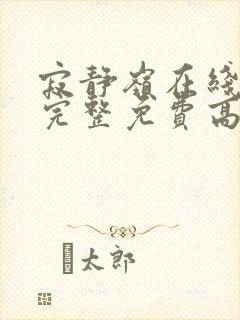 寂静嶺在綫
完整免費高
太郎